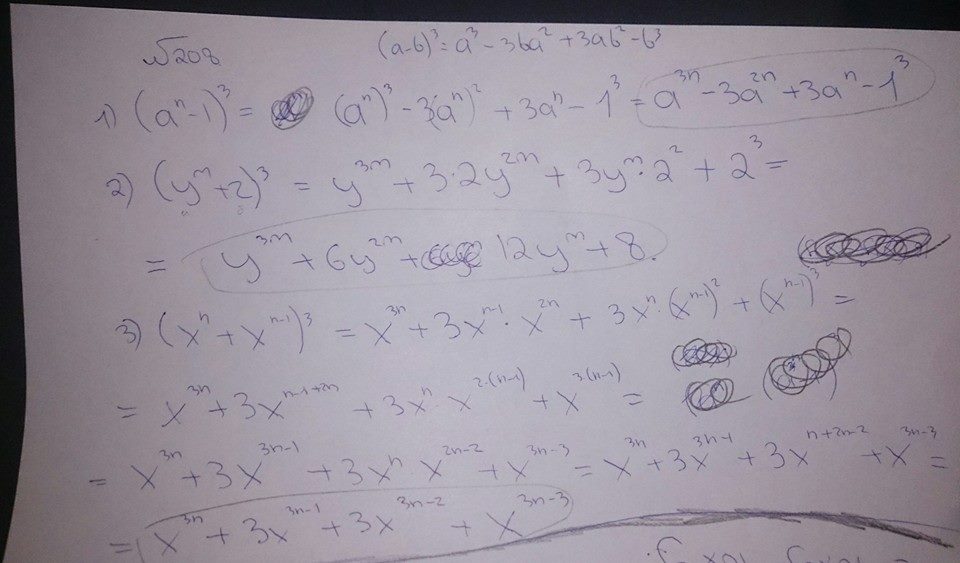 №208 (a-b)³ = a³ - 3ba² + 3ab² - b³
1) (aⁿ-1)³ = (aⁿ)³ - 3(aⁿ)² + 3aⁿ - 1³ = a³ⁿ - 3a²ⁿ + 3aⁿ - 1³
2) (yᵐ+2)³ = y³ᵐ + 3·2y²ᵐ + 3yᵐ·2² + 2³ =
= y³ᵐ + 6y²ᵐ + 12yᵐ + 8.
3) (xⁿ + xⁿ⁻¹)³ = x³ⁿ + 3xⁿ⁻¹ · x²ⁿ + 3xⁿ·(xⁿ⁻¹)² + (xⁿ⁻¹)³ =
= x³ⁿ + 3xⁿ⁻¹⁺²ⁿ + 3xⁿ x²·⁽ⁿ⁻¹⁾ + x³·⁽ⁿ⁻¹⁾ =
= x³ⁿ + 3x³ⁿ⁻¹ + 3xⁿ x²ⁿ⁻² + x³ⁿ⁻³ = x³ⁿ + 3x³ⁿ⁻¹ + 3xⁿ⁺²ⁿ⁻² + x³ⁿ⁻³ =
= x³ⁿ + 3x³ⁿ⁻¹ + 3x³ⁿ⁻² + x³ⁿ⁻³